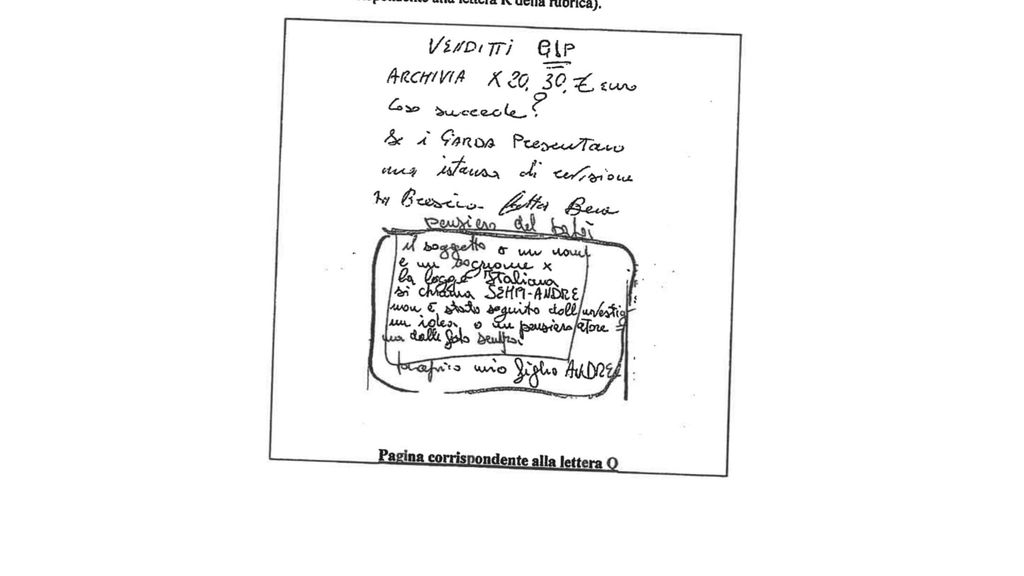 spondente alla lettera R della rubrica).
VENDITTI GIP
ARCHIVIA X 20, 30, € euro
Coso succede?
Se i GARDA Presentano
una istansa di revisione
A Brescia. Bera
pensiero del
il soggetto o un nome
e un cognome x
la legge Italiana
si chiama SEMPI-ANDRE
non è stato seguito dall investig
un idea, o un pensiero atore =
ma dalle foto sembra
mio figlio ANDREA
Pagina corrispondente alla lettera Q